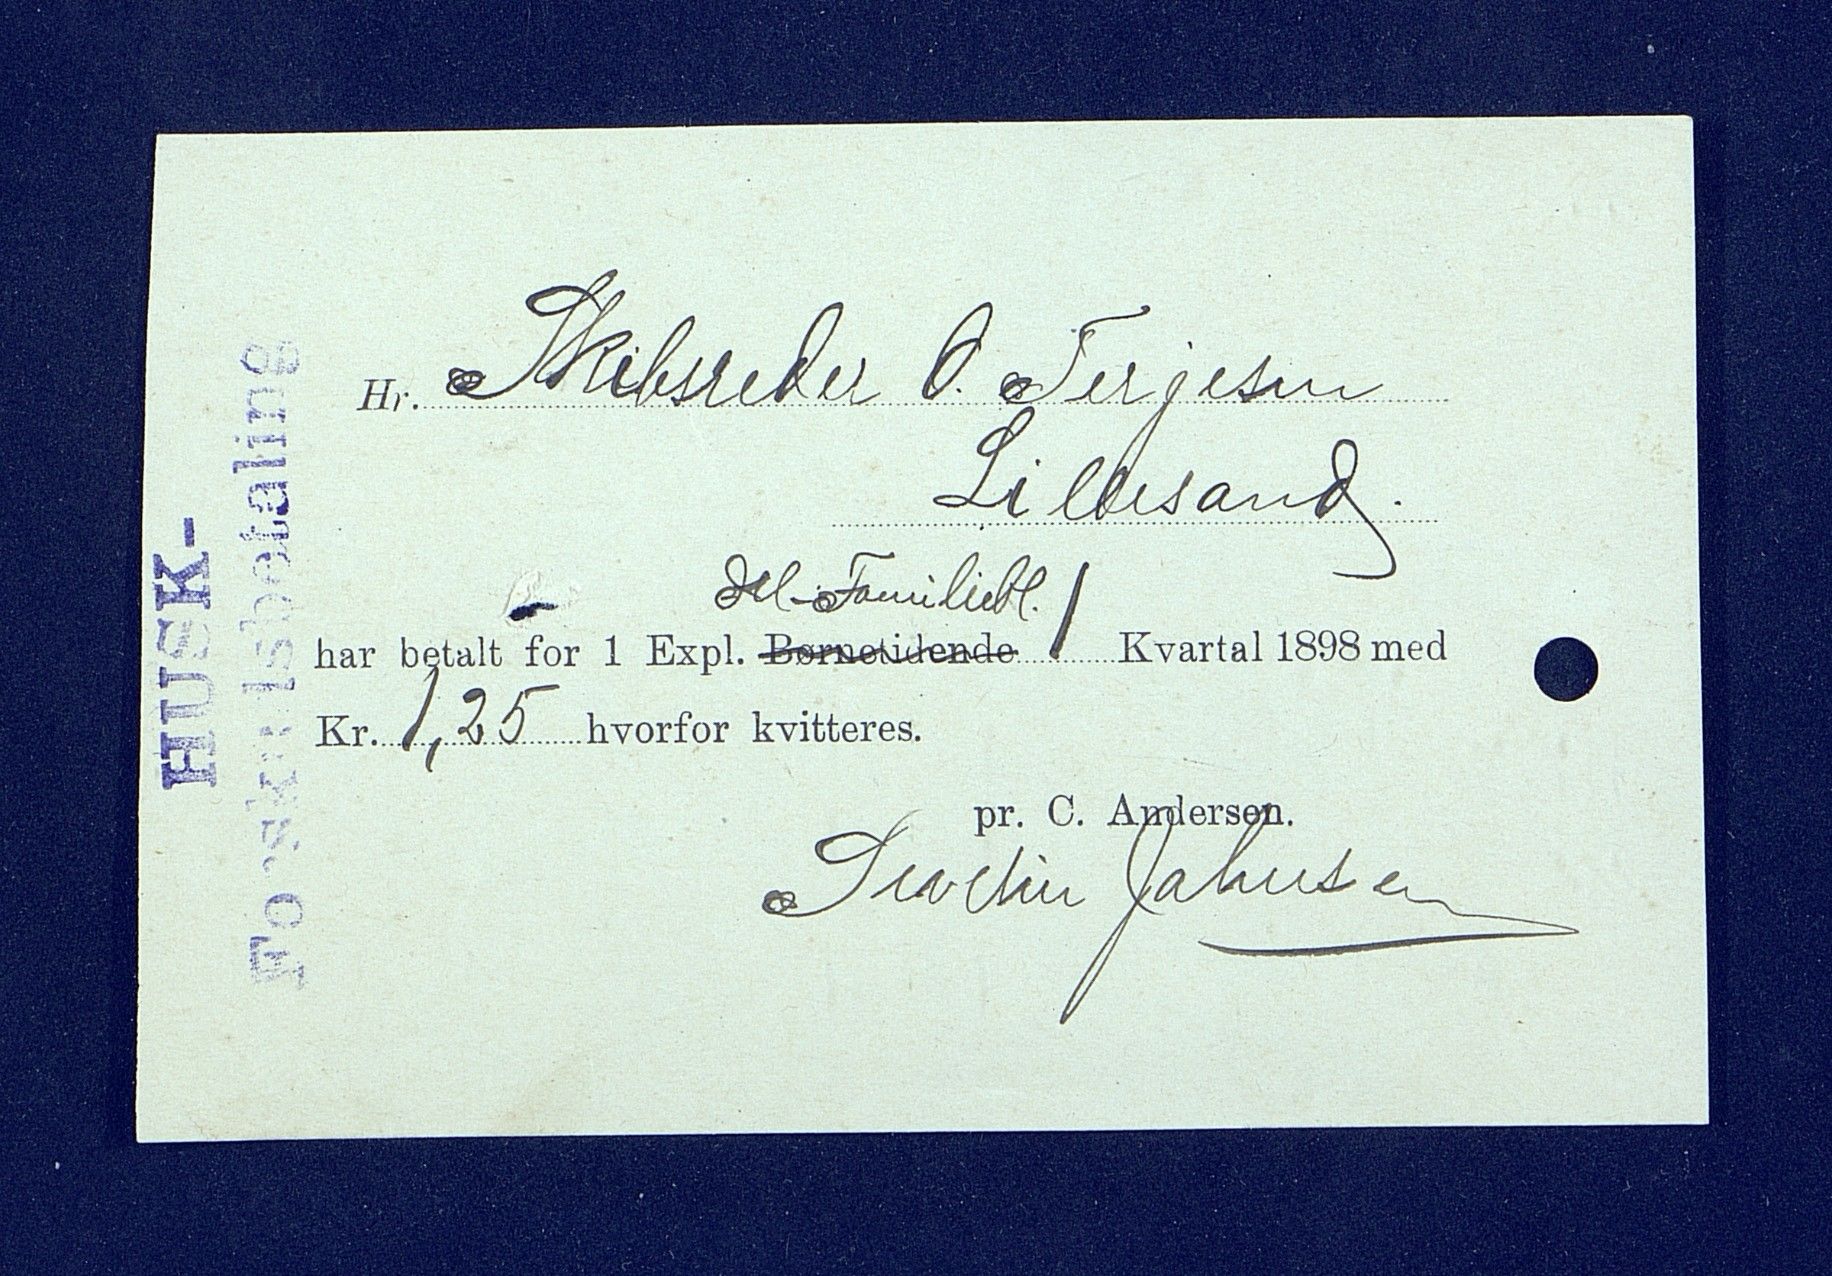 HUSK-
Forskudsbetaling
Hr. Skibsreder O. Terjesen
Lillesand.
Ill. Familiebl.
har betalt for 1 Expl. Børnetidende 1 Kvartal 1898 med
Kr. 1,25 hvorfor kvitteres.
pr. C. Andersen.
Jahnsen